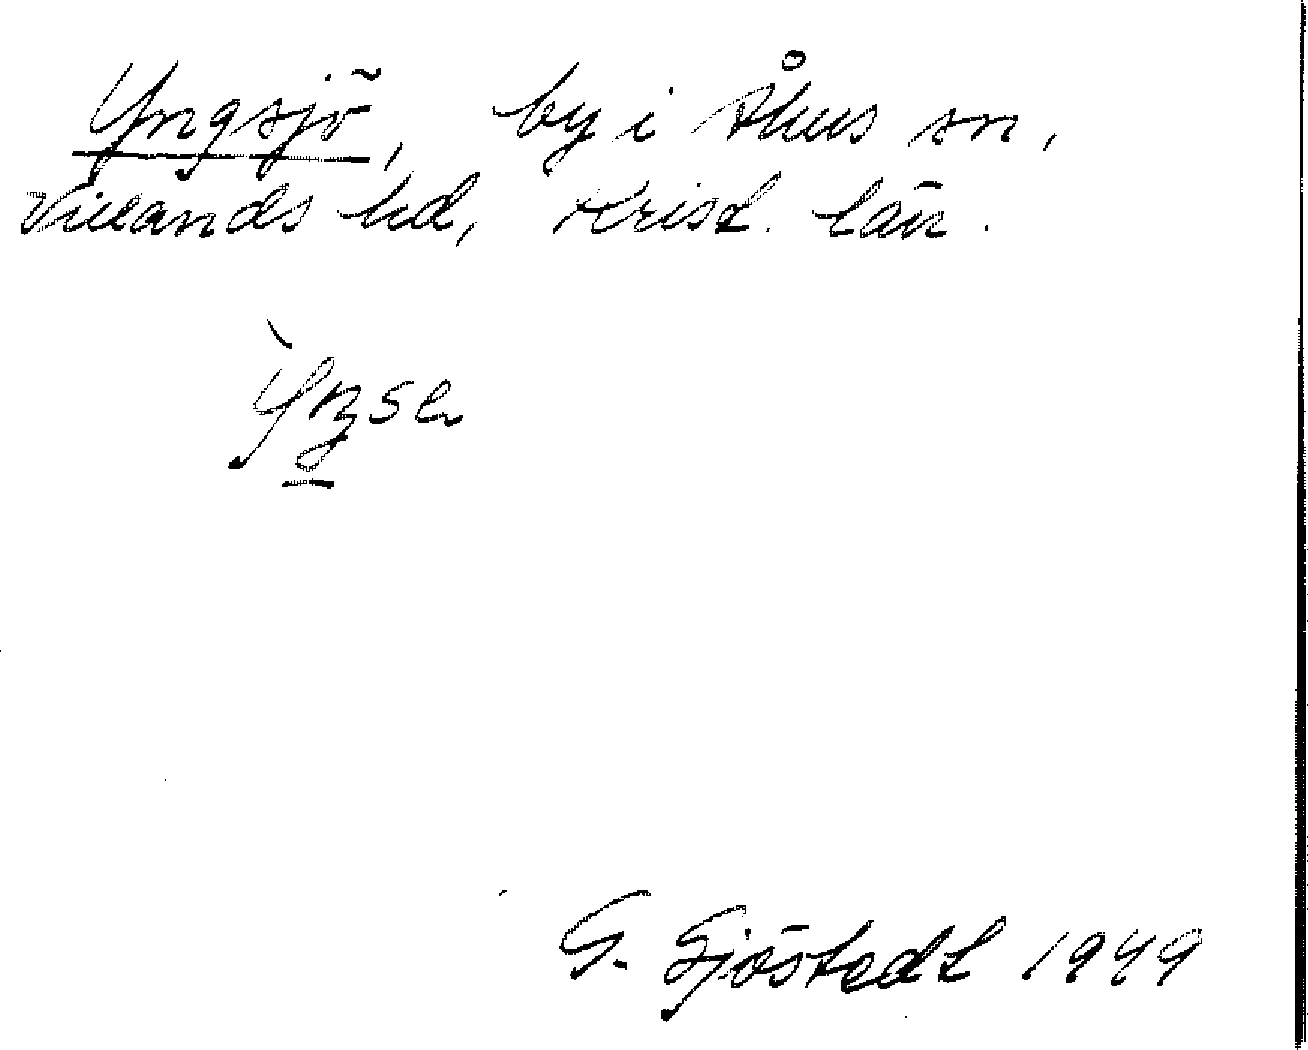 Yngsjö, by i Åhus sn,
Villands hd, Krist. län.
G. Sjöstedt 1949